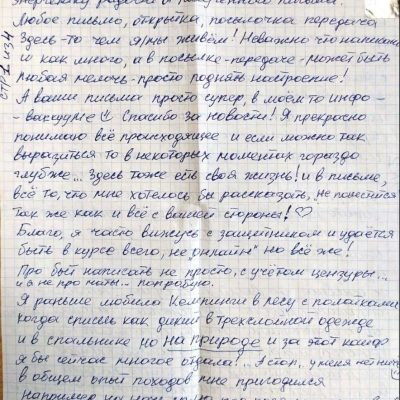 энергетику радости и полученного письма.
Любое письмо, открытка, посылочка передача
Здесь - то чем я/мы живём! Неважно что написано
и как много, а в посылке-передаче-может быть
любая мелочь-просто поднять настроение!
А ваши письма просто супер, в моём то инфо-
-вакууме☺ Спасибо за новости! Я прекрасно
понимаю всё происходящее и если можно так
выразиться то в некоторых моментах гораздо
глубже... Здесь тоже есть своя жизнь! и в письме,
всё то, что мне хотелось бы рассказать, не поместится
так же как и всё с вашей стороны! ♡
Благо, я часто вижусь с защитником и удаётся
быть в курсе всего, не „онлайн" но всё же!
Про быт написать не просто, с учётом цензуры...
и я не про маты... попробую.
Я раньше любила Кемпинги в лесу с палатками
когда спишь как дикий в трехслойной одежде
и в спальнике но на природе и за этот кайф
я бы сейчас многое отдала!... А стоп, у меня нет ничего
в общем опыт походов мне пригодился
Например
стр 1 из 4